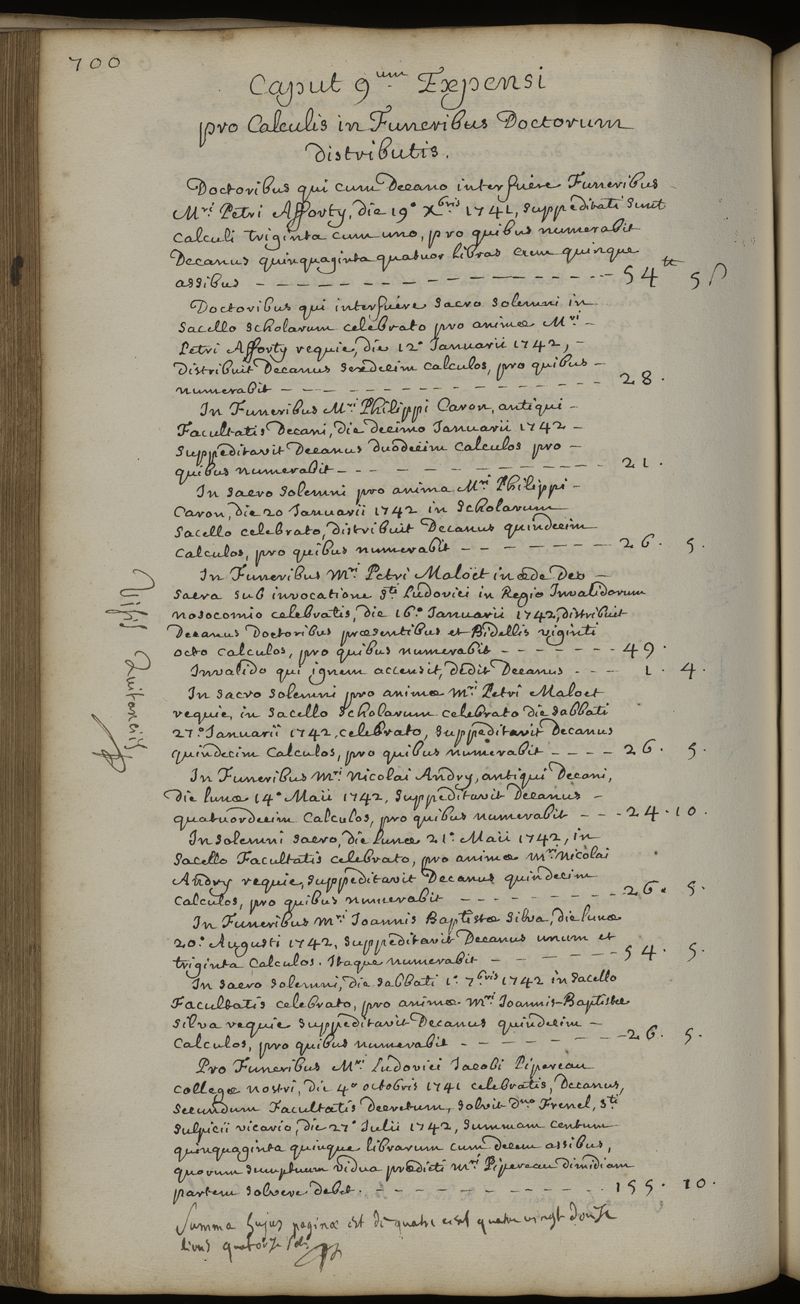 700
Caput 9um Expensi
pro Calculis in Funeribus Doctorum
distributis.
Doctoribus qui cum Decano interfuére Funeribus
Mri Petri Afforty, die 19a Xbris 1741, suppeditati sunt
calculi triginta cum uno, pro quibus numerabit
Decanus quinquaginta quatuor libras cum quinque
assibus - - - 54tt 5s
Doctoribus qui interfuére sacro solemni in
sacello scholarum celebrato pro animæ Mri -
Petri Afforty requie, die 12a Januarii 1742, -
distribuit Decanus sexdecim calculos, pro quibus -
numerabit - - - 28.
In Funeribus Mri Philippi Caron, antiqui -
Facultatis Decani, die decimo Januarii 1742 -
suppeditavit Decanus duodecim calculos pro -
quibus numerabit - - - 21.
In sacro solemni pro anima Mri Philippi -
Caron, die 20 Januarii 1742 in scholarum
sacello celebrato, distribuit Decanus quindecim
calculos, pro quibus numerabit - - - 26. 5.
In Funeribus Mri Petri Maloët in æde Deo -
sacra sub invocatione Sti Ludovici in Regio Invalidorum
nosocomio celebratis, die 16a Januarii 1742, distribuit
Decanus Doctoribus præsentibus et Bidellis viginti
octo calculos, pro quibus numerabit - - - 49.
Invalido qui ignem accensit, dedit Decanus - - - 1. 4.
In sacro solemni pro animæ Mri Petri Maloet
requie, in sacello scholarum celebrato die sabbati
27a Januarii 1742, celebrato, suppeditavit Decanus
quindecim calculos, pro quibus numerabit - - - 26. 5.
In Funeribus Mri Nicolai Andry, antiqui Decani,
die lunæ 14a Maii 1742, suppeditavit Decanus -
quatuordecim calculos, pro quibus numerabit - - - 24. 10.
In solemni sacro, die lunæ 21a Maii 1742, in
sacello Facultatis celebrato, pro animæ Mri Nicolai
Andry requie, suppeditavit Decanus quindecim
calculos, pro quibus numerabit - - - 26. 5.
In Funeribus Mri Joannis Baptistæ Silva, die lunæ
20a Augusti 1742, suppeditavit Decanus unum et
triginta calculos. Itaque numerabit - - - 54. 5.
In sacro solemni, die sabbati 1a 7bris 1742 in sacello
Facultatis celebrato, pro animæ Mri Joannis-Baptistæ
Silva requie suppeditavit Decanus quindecim -
calculos, pro quibus numerabit - - - 26. 5.
Pro Funeribus Mri Ludovici Jacobi Pipereau
collegæ nostri, die 4a octobris 1741 celebratis, Decanus,
secundum Facultatis Decretum, solvit dno Frenel, Sti
Sulpicii vicario, die 27a Julii 1742, summam centum
quinquaginta quinque librarum cum decem assibus,
quorum sumptuum vidua prædicti Mri Pipereau dimidiam
partem solvere debet. - - - 155. 10.
Summa hujus paginæ est de quatre cent quatre vingt douze
livres quatorze sols